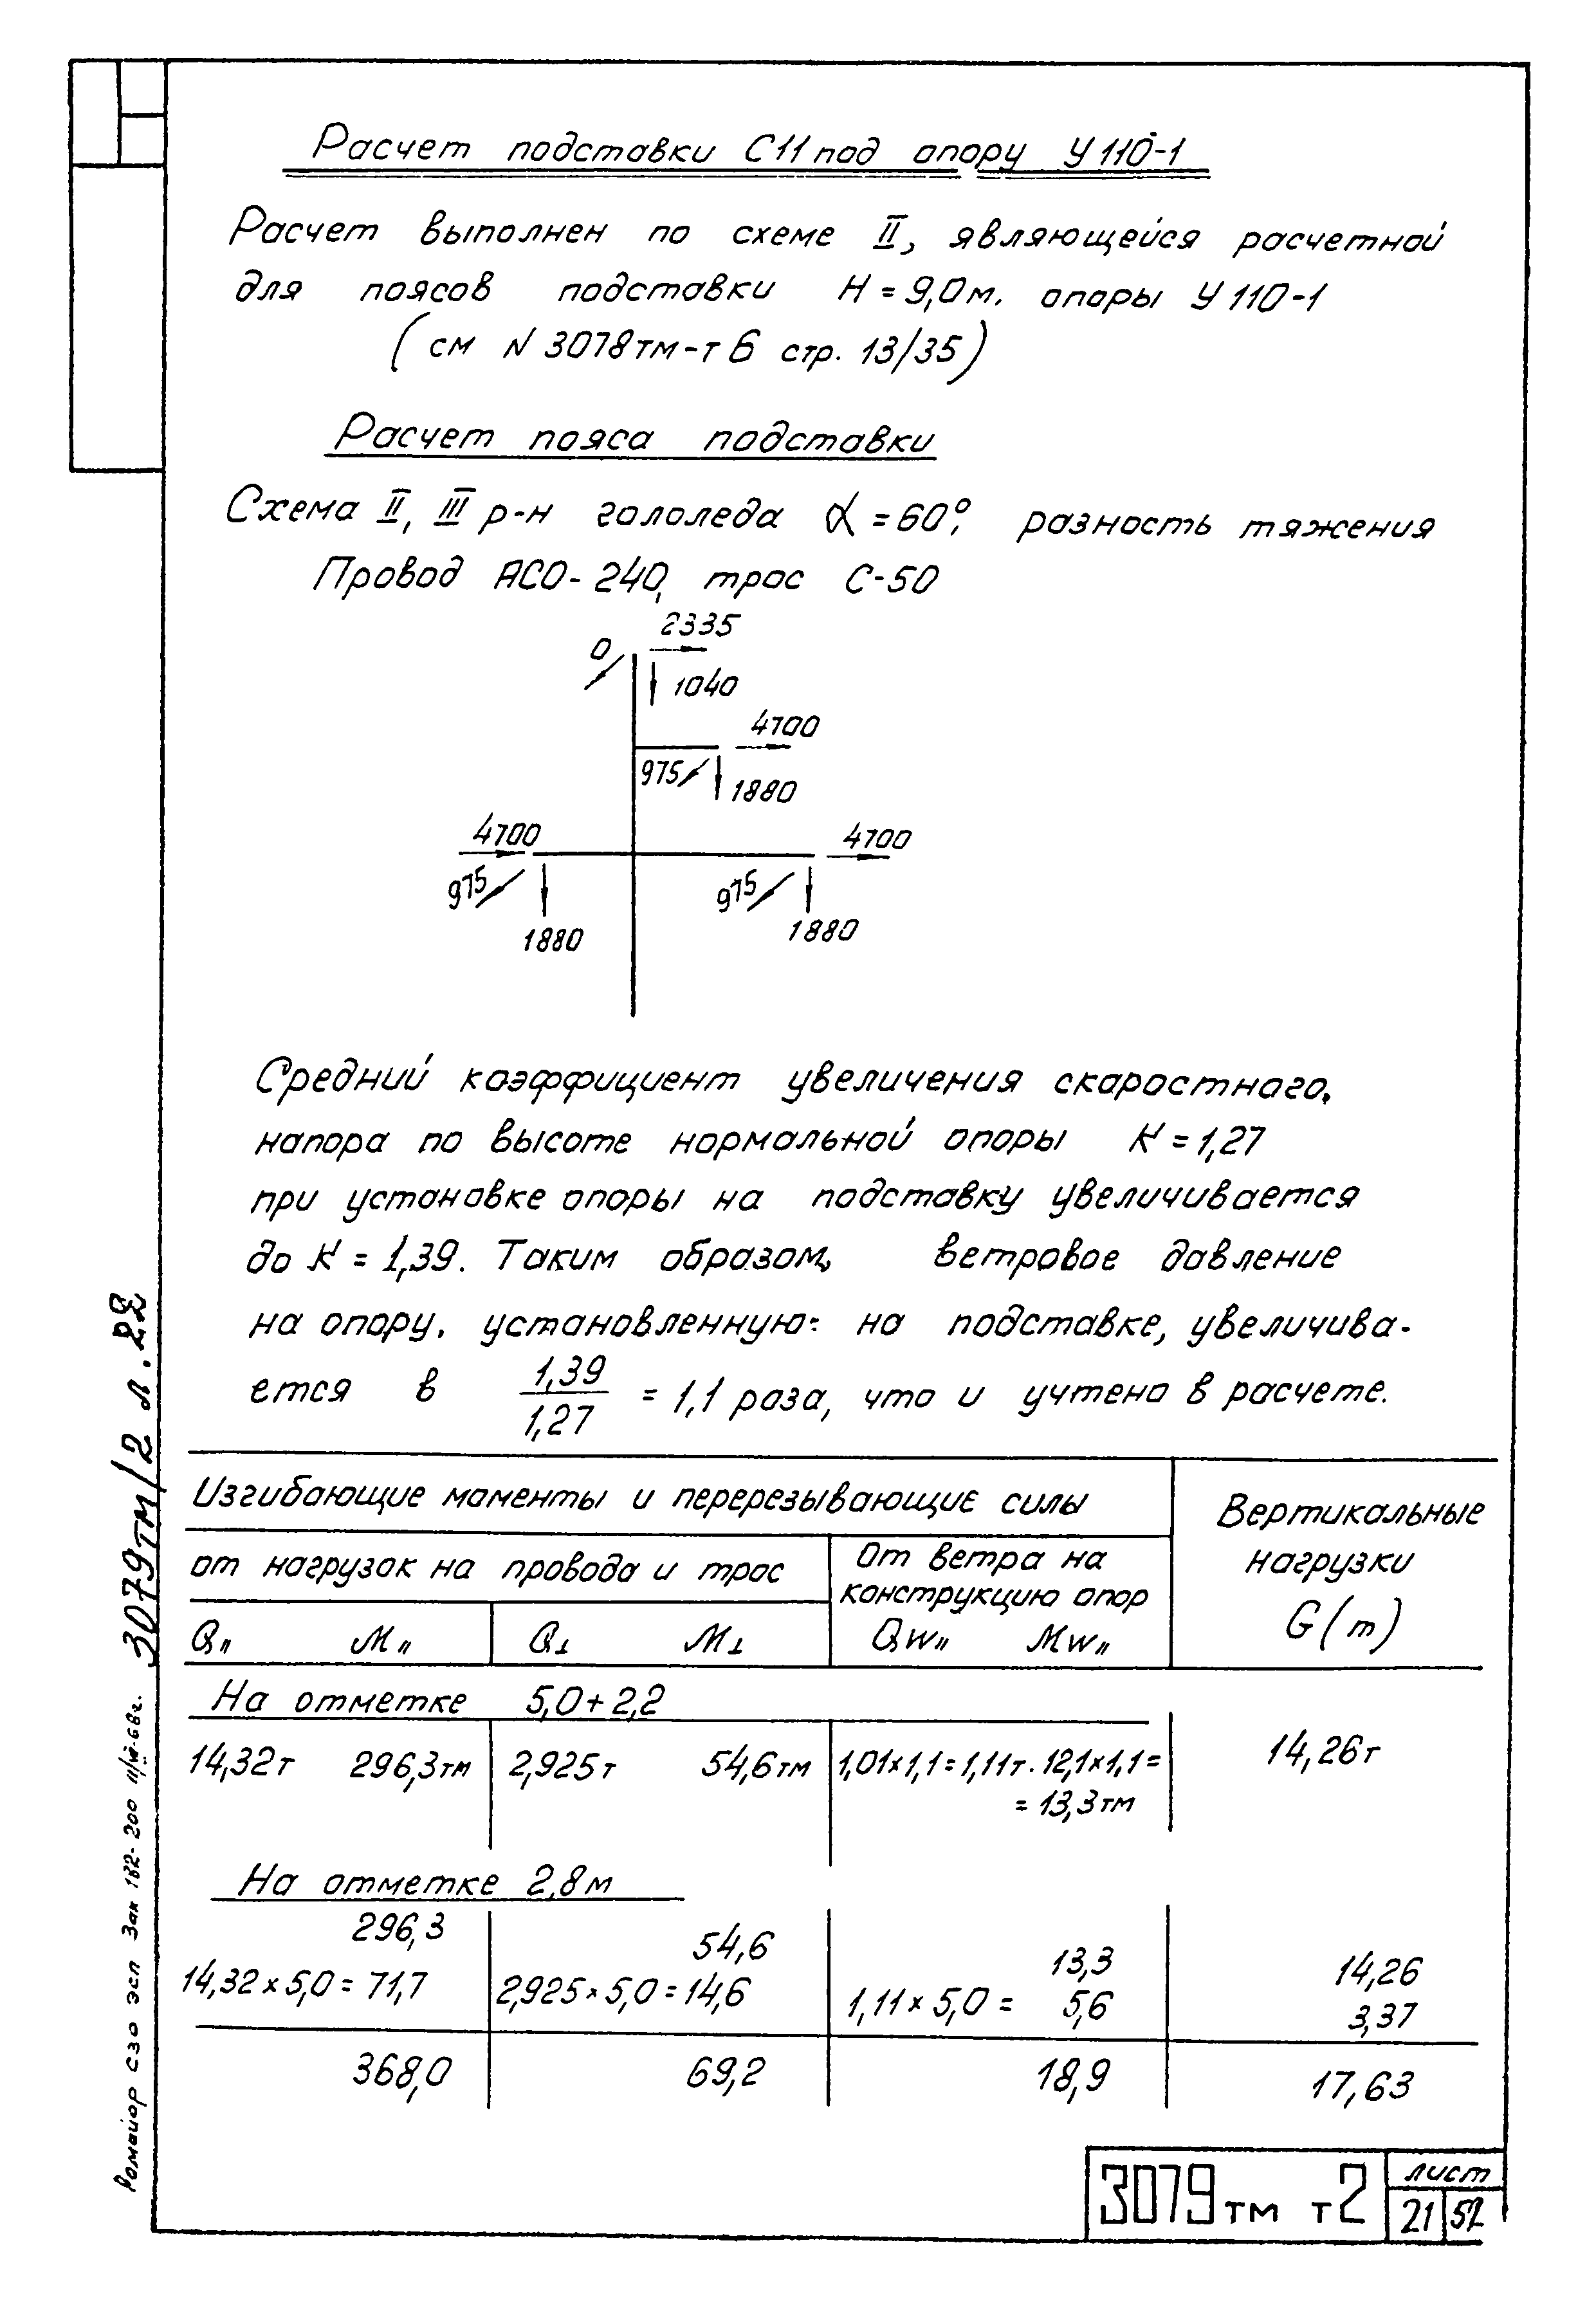 Расчет подставки С11 под опору У110-1
Расчет выполнен по схеме II, являющейся расчетной
для поясов подставки Н = 9,0м. опоры У110-1
(см N 3078тм-т6 стр. 13/35)
Расчет пояса подставки
Схема II, III р-н гололеда α = 60°; разность тяжения
Провод АСО-240, трос С-50
0 2335
1040
4700
975 1880
4700 4700
975 975
1880 1880
Средний коэффициент увеличения скоростного
напора по высоте нормальной опоры К = 1,27
при установке опоры на подставку увеличивается
до К = 1,39. Таким образом, ветровое давление
на опору, установленную на подставке, увеличива-
ется в 1,39/1,27 = 1,1 раза, что и учтено в расчете.
Изгибающие моменты и перерезывающие силы
Вертикальные
нагрузки
G(т)
от нагрузок на провода и трос
От ветра на
конструкцию опор
Q" М" Q⊥ М⊥ Qw" Мw"
На отметке 5,0+2,2
14,32т 296,3тм 2,925т 54,6тм 1,01×1,1=1,11т. 12,1×1,1= 14,26т
= 13,3тм
На отметке 2,8м
296,3 54,6 13,3 14,26
14,32×5,0=71,7 2,925×5,0=14,6 1,11×5,0= 5,6 3,37
368,0 69,2 18,9 17,63
3079тм т2
лист
21 52
3079тм/2 л.22
Зак 182-200